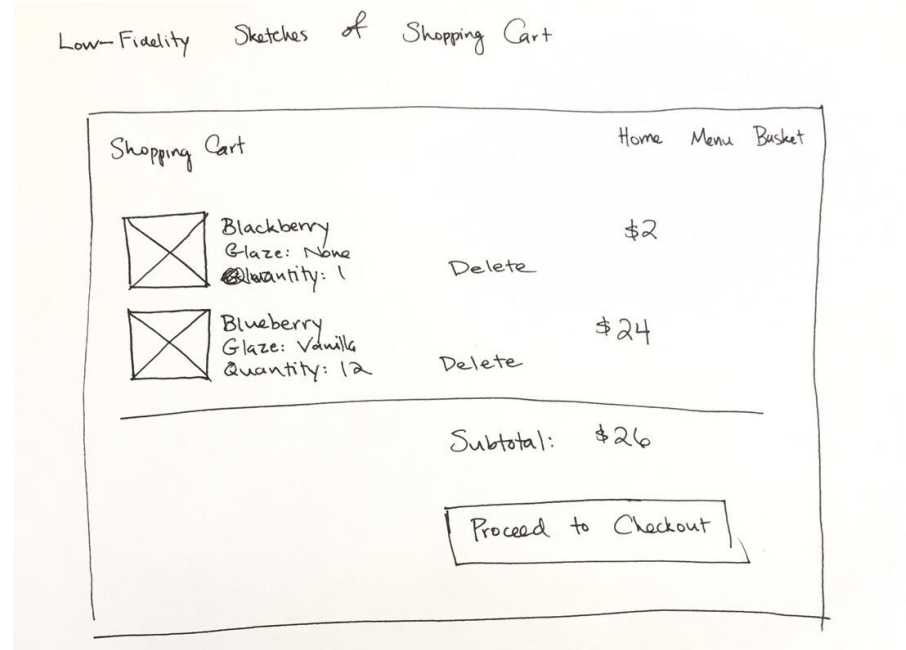 Low-Fidelity Sketches of Shopping Cart
Shopping Cart Home Menu Basket
Blackberry $2
Glaze: None
Quantity: 1 Delete
Blueberry $24
Glaze: Vanilla
Quantity: 12 Delete
Subtotal: $26
Proceed to Checkout